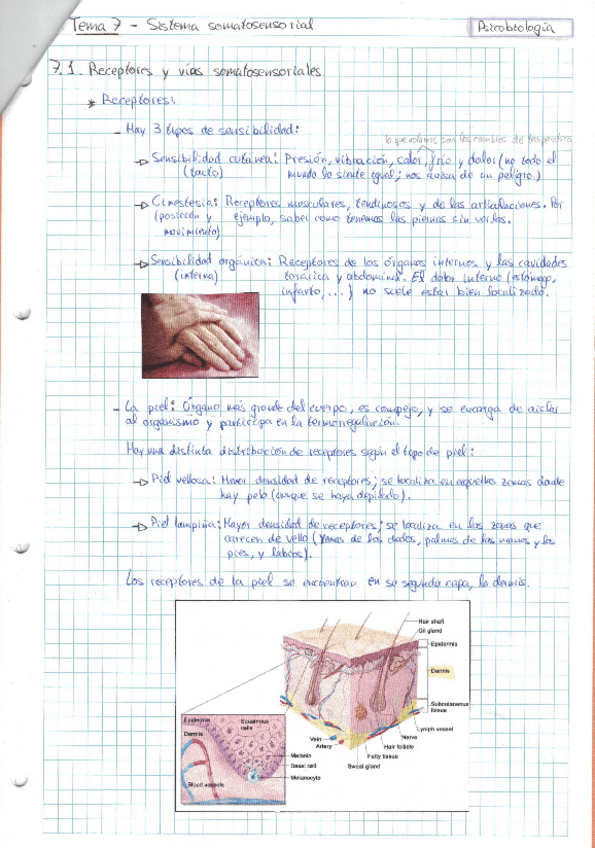 Tema 7 - Sistema somatosensorial
Psicobiología
7.1. Receptores y vías somatosensoriales.
* Receptores:
- Hay 3 tipos de sensibilidad:
lo que notamos son los cambios de temperatura
→ Sensibilidad cutánea: Presión, vibración, calor, frío y dolor (no todo el
(tacto) mundo lo siente igual; nos avisa de un peligro.)
→ Cinestesia: Receptores musculares, tendinosos y de las articulaciones. Por
(posición y ejemplo, saber como tenemos las piernas sin verlas.
movimiento)
→ Sensibilidad orgánica: Receptores de los órganos internos y las cavidades
(interna) torácica y abdominal. El dolor interno (estómago,
infarto, ...) no suele estar bien localizado.
- La piel: Órgano más grande del cuerpo, es complejo, y se encarga de aislar
al organismo y participa en la termorregulación.
Hay una distinta distribución de receptores según el tipo de piel:
→ Piel vellosa: densidad de receptores; se localiza en aquellas zonas donde
hay pelo (aunque se haya depilado).
→ Piel lampiña: Mayor densidad de receptores; se localiza en las zonas que
carecen de vello (Yemas de los dedos, palmas de las manos y los
pies, y labios).
Los receptores de la piel se encuentran en su segunda capa, la dermis.
Hair shaft
Oil gland
Epidermis
Dermis
Subcutaneous
tissue
Lymph vessel
Nerve
Hair follicle
Fatty tissue
Sweat gland
Vein
Artery
Epidermis
Squamous
cells
Dermis
Melanin
Basal cell
Melanocyte
Blood vessels